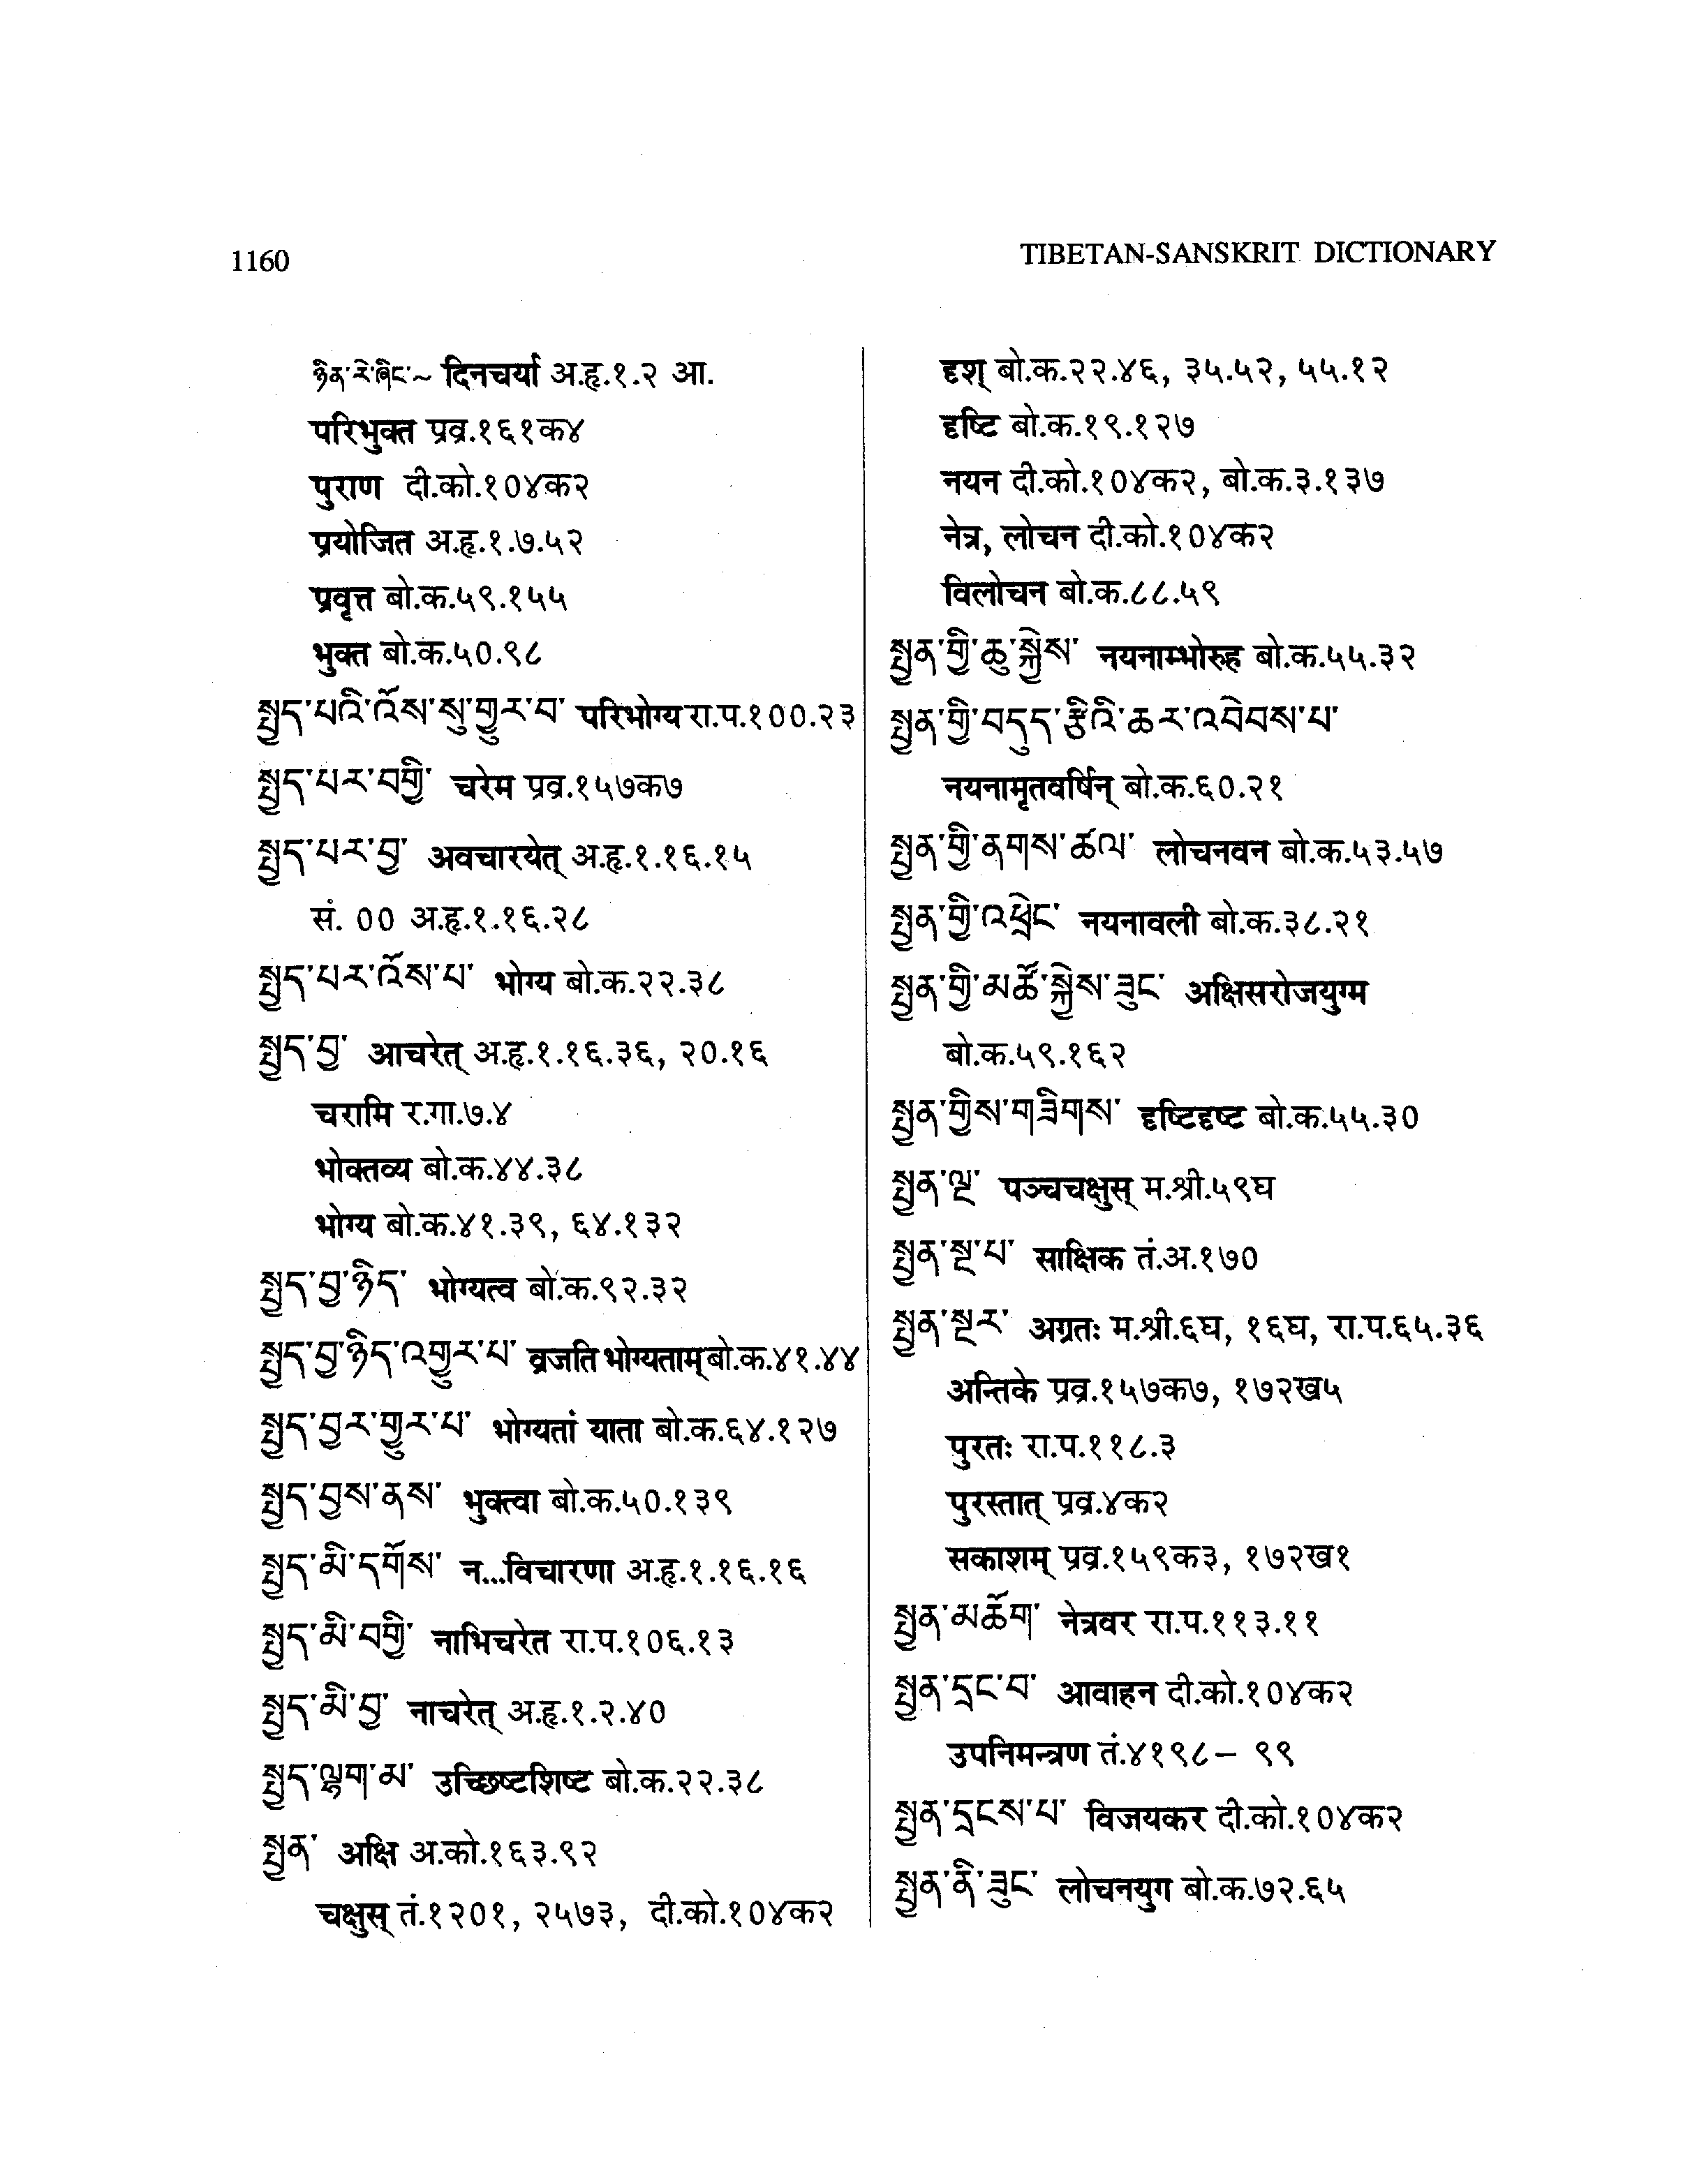 1160
TIBETAN-SANSKRIT DICTIONARY
ཉིན་རེ་ཞིང་~ दिनचर्या अ.हृ.१.२ आ.
परिभुक्त प्रव्र.१६१क४
पुराण दी.को.१०४क२
प्रयोजित अ.हृ.१.७.५२
प्रवृत्त बो.क.५९.१५५
भुक्त बो.क.५०.९८
སྤྱད་པའི་འོས་སུ་གྱུར་བ་ परिभोग्य रा.प.१००.२३
སྤྱད་པར་བགྱི་ चरेम प्रव्र.१५७क७
སྤྱད་པར་བྱ་ अवचारयेत् अ.हृ.१.१६.१५
सं. ०० अ.हृ.१.१६.२८
སྤྱད་པར་འོས་པ་ भोग्य बो.क.२२.३८
སྤྱད་བྱ་ आचरेत् अ.हृ.१.१६.३६, २०.१६
चरामि र.गा.७.४
भोक्तव्य बो.क.४४.३८
भोग्य बो.क.४१.३९, ६४.१३२
སྤྱད་བྱ་ཉིད་ भोग्यत्व बो.क.९२.३२
སྤྱད་བྱ་ཉིད་འགྱུར་པ་ व्रजति भोग्यताम् बो.क.४१.४४
སྤྱད་བྱར་གྱུར་པ་ भोग्यतां याता बो.क.६४.१२७
སྤྱད་བྱས་ནས་ भुक्त्वा बो.क.५०.१३९
སྤྱད་མི་དགོས་ न...विचारणा अ.हृ.१.१६.१६
སྤྱད་མི་བགྱི་ नाभिचरेत रा.प.१०६.१३
སྤྱད་མི་བྱ་ नाचरेत् अ.हृ.१.२.४०
སྤྱད་ལྷག་མ་ उच्छिष्टशिष्ट बो.क.२२.३८
སྤྱན་ अक्षि अ.को.१६३.९२
चक्षुस् तं.१२०१, २५७३, दी.को.१०४क२
दृश् बो.क.२२.४६, ३५.५२, ५५.१२
दृष्टि बो.क.१९.१२७
नयन दी.को.१०४क२, बो.क.३.१३७
नेत्र, लोचन दी.को.१०४क२
विलोचन बो.क.८८.५९
སྤྱན་གྱི་ཆུ་སྐྱེས་ नयनाम्भोरुह बो.क.५५.३२
སྤྱན་གྱི་བདུད་རྩིའི་ཆར་འབེབས་པ་
नयनामृतवर्षिन् बो.क.६०.२१
སྤྱན་གྱི་ནགས་ཚལ་ लोचनवन बो.क.५३.५७
སྤྱན་གྱི་འཕྲེང་ नयनावली बो.क.३८.२१
སྤྱན་གྱི་མཚོ་སྐྱེས་ཟུང་ अक्षिसरोजयुग्म
बो.क.५९.१६२
སྤྱན་གྱིས་གཟིགས་ दृष्टिदृष्ट बो.क.५५.३०
སྤྱན་ལྔ་ पञ्चचक्षुस् म.श्री.५९घ
སྤྱན་སྔ་པ་ साक्षिक तं.अ.१७०
སྤྱན་སྔར་ अग्रतः म.श्री.६घ, १६घ, रा.प.६५.३६
अन्तिके प्रव्र.१५७क७, १७२ख५
पुरतः रा.प.११८.३
पुरस्तात् प्रव्र.४क२
सकाशम् प्रव्र.१५९क३, १७२ख१
སྤྱན་མཆོག་ नेत्रवर रा.प.११३.११
སྤྱན་དྲང་བ་ आवाहन दी.को.१०४क२
उपनिमन्त्रण तं.४१९८– ९९
སྤྱན་དྲངས་པ་ विजयकर दी.को.१०४क२
སྤྱན་ནི་ཟུང་ लोचनयुग बो.क.७२.६५